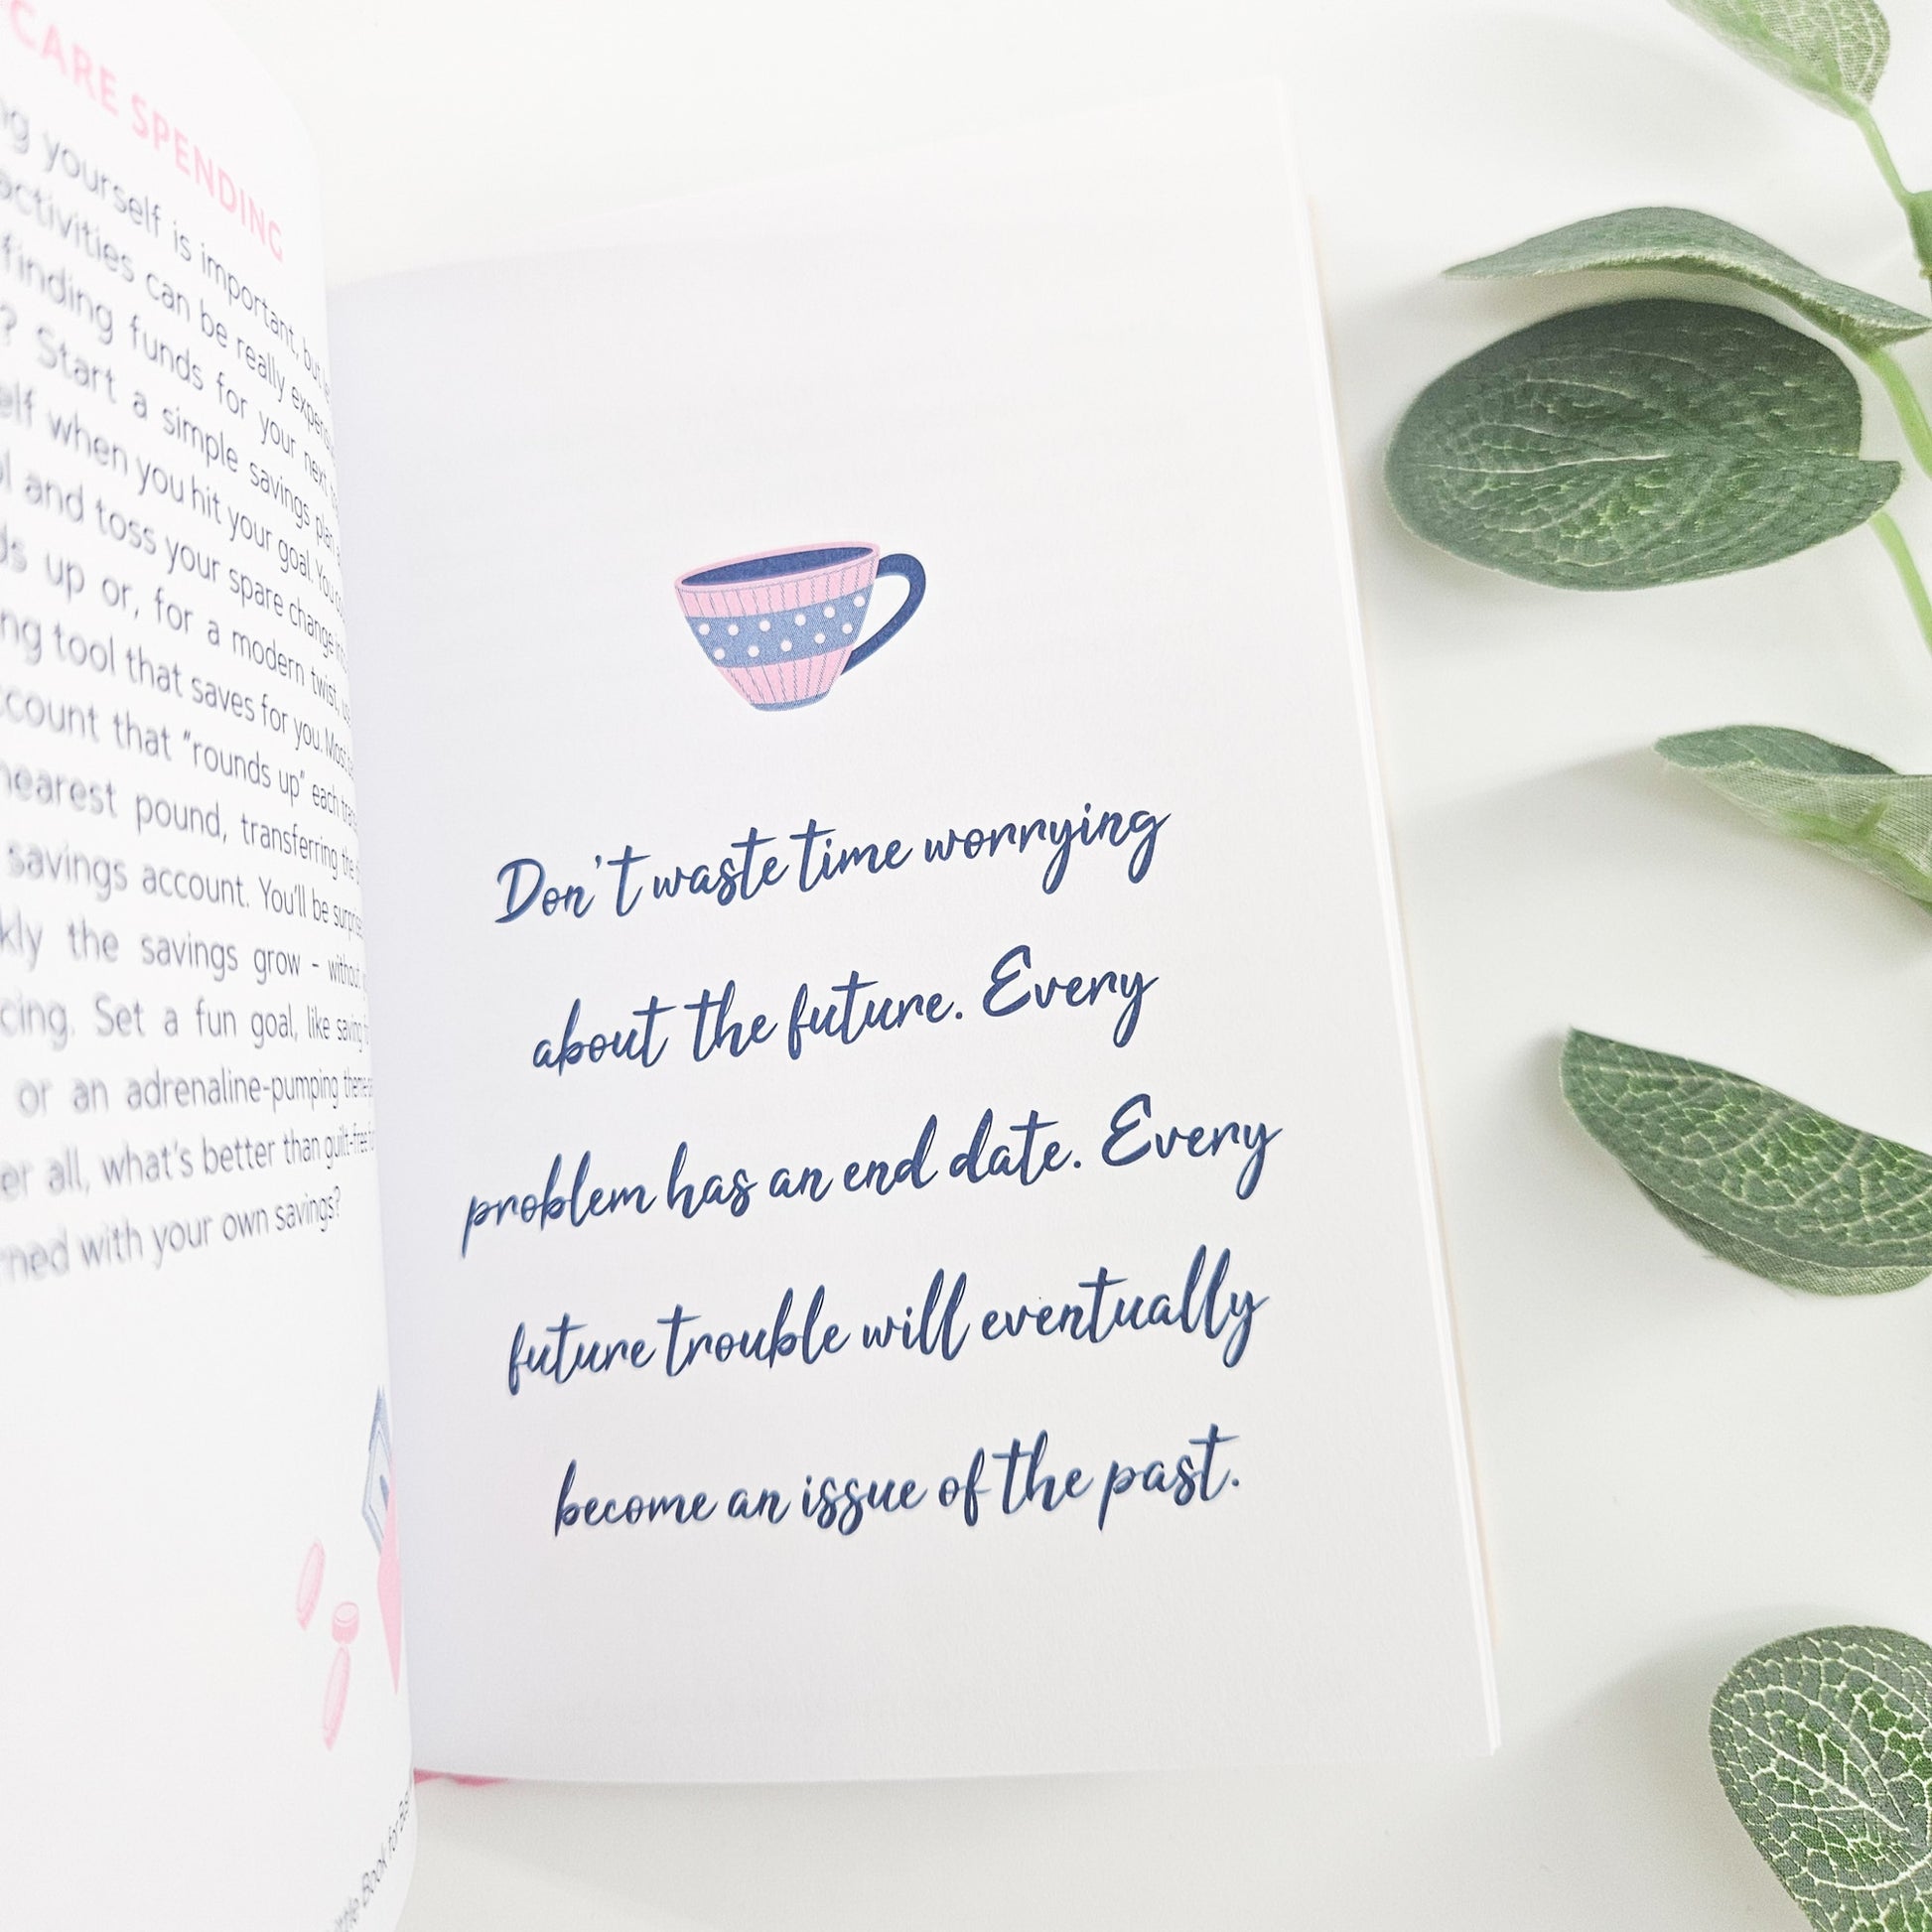 CARE SPENDING
yourself is important, but
activities can be really
finding funds for your next
? Start a simple savings plan
when you hit your goal. You
and toss your spare change
up or, for a modern twist,
tool that saves for you. Most
that "rounds up" each
nearest pound, transferring the
savings account. You'll be
the savings grow – without
Set a fun goal, like saving
or an adrenaline-pumping
all, what's better than guilt-free
with your own savings?
Book for
Don't waste time worrying
about the future. Every
problem has an end date. Every
future trouble will eventually
become an issue of the past.